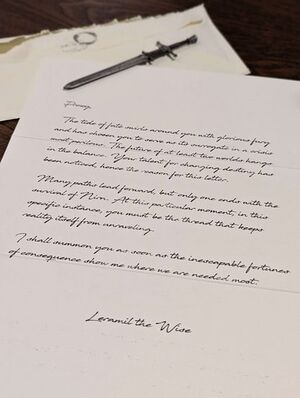 Proxy,
The tide of fate swirls around you with glorious fury
and has chosen you to serve as its surrogate in a crisis
most perilous. The future of at least two worlds hangs
in the balance. Your talent for changing destiny has
been noticed, hence the reason for this letter.
Many paths lead forward, but only one ends with the
survival of Nirn. At this particular moment, in this
specific instance, you must be the thread that keeps
reality itself from unraveling.
I shall summon you as soon as the inescapable fortunes
of consequence show me where we are needed most.
Leramil the Wise